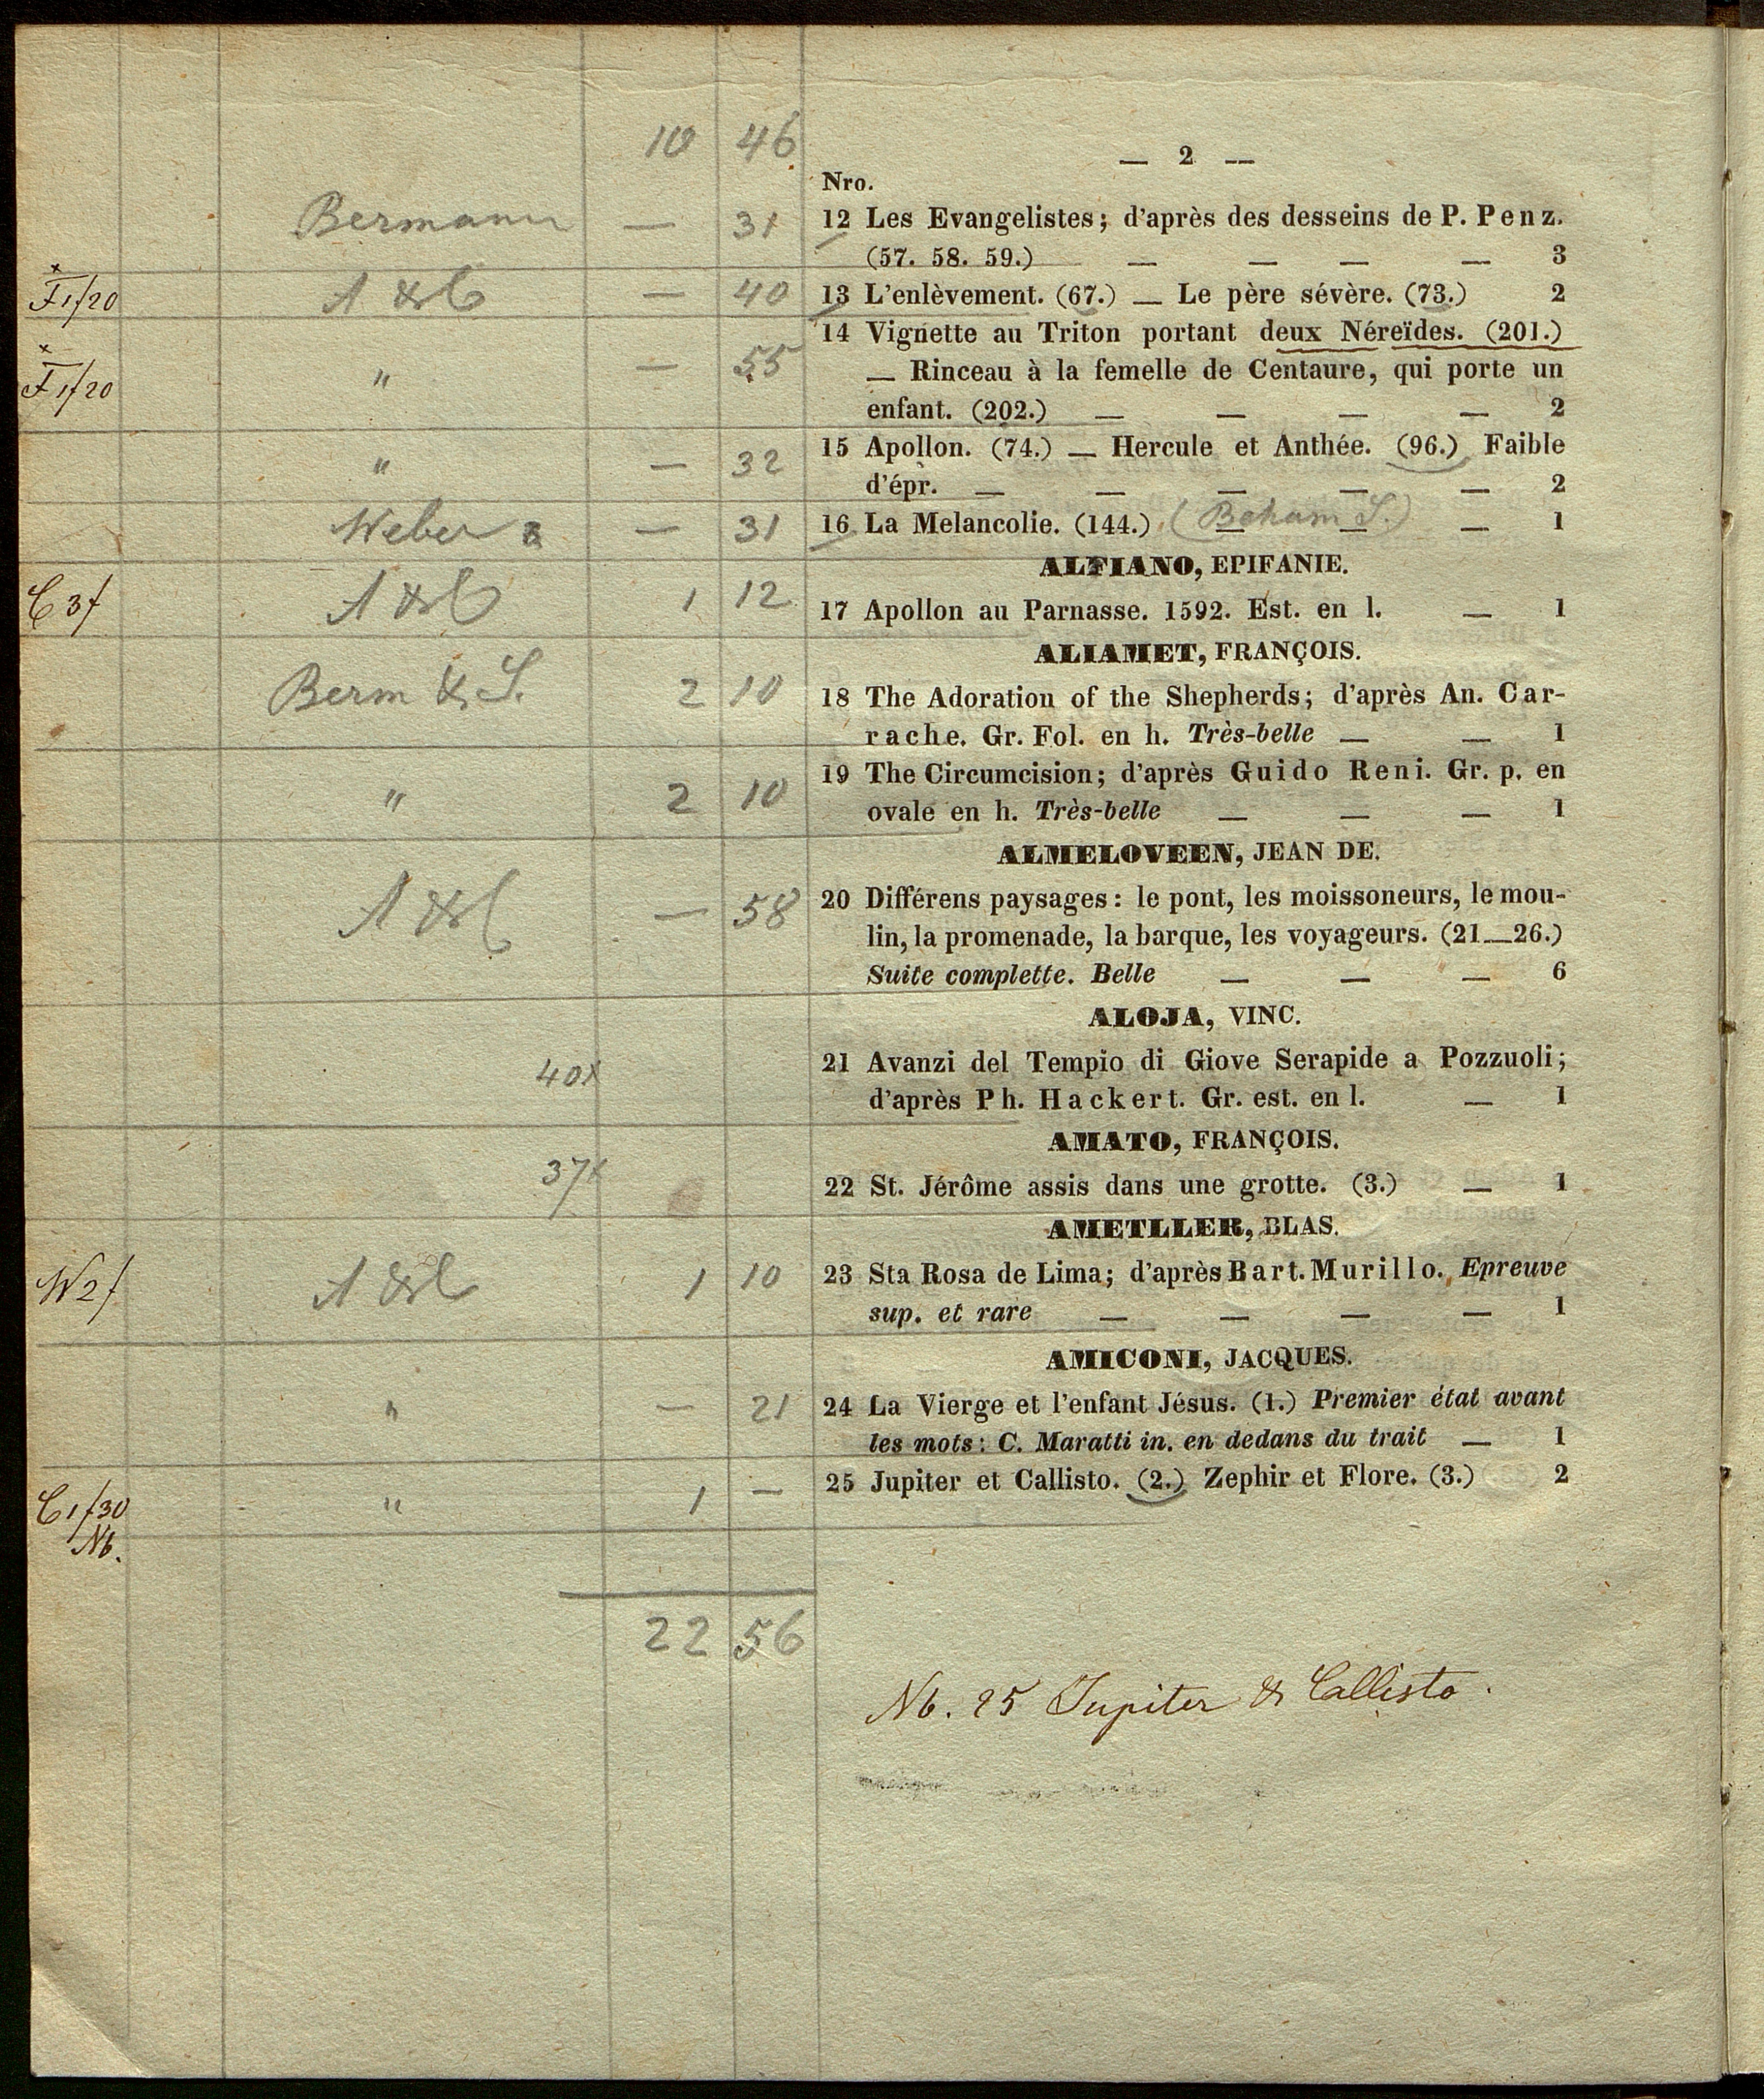 10 46
— 2 —
Nro.
Bermann — 31 12 Les Evangelistes; d'après des desseins de P. Penz.
(57. 58. 59.) — — — — 3
F 1f20 A & C — 40 13 L'enlèvement. (67.) — Le père sévère. (73.) 2
14 Vignette au Triton portant deux Néreïdes. (201.)
F 1f20 " — 55 — Rinceau à la femelle de Centaure, qui porte un
enfant. (202.) — — — — 2
" — 32 15 Apollon. (74.) — Hercule et Anthée. (96.) Faible
d'épr. — — — — — 2
Weber — 31 16 La Melancolie. (144.) (Beham S.) — — — 1
ALFIANO, EPIFANIE.
C 3f A & C 1 12 17 Apollon au Parnasse. 1592. Est. en l. — 1
ALIAMET, FRANÇOIS.
Berm & S. 2 10 18 The Adoration of the Shepherds; d'après An. Car-
rache. Gr. Fol. en h. Très-belle — — 1
" 2 10 19 The Circumcision; d'après Guido Reni. Gr. p. en
ovale en h. Très-belle — — — 1
ALMELOVEEN, JEAN DE.
A & C — 58 20 Différens paysages: le pont, les moissoneurs, le mou-
lin, la promenade, la barque, les voyageurs. (21—26.)
Suite complette. Belle — — — 6
ALOJA, VINC.
40x 21 Avanzi del Tempio di Giove Serapide a Pozzuoli;
d'après Ph. Hackert. Gr. est. en l. — 1
AMATO, FRANÇOIS.
37x 22 St. Jérôme assis dans une grotte. (3.) — 1
AMETLLER, BLAS.
W 2f A & C 1 10 23 Sta Rosa de Lima; d'après Bart. Murillo. Epreuve
sup. et rare — — — — 1
AMICONI, JACQUES.
" — 21 24 La Vierge et l'enfant Jésus. (1.) Premier état avant
les mots: C. Maratti in. en dedans du trait — 1
C 1f30 " 1 — 25 Jupiter et Callisto. (2.) Zephir et Flore. (3.) 2
Nb.
22 56
Nb. 25 Jupiter & Callisto.